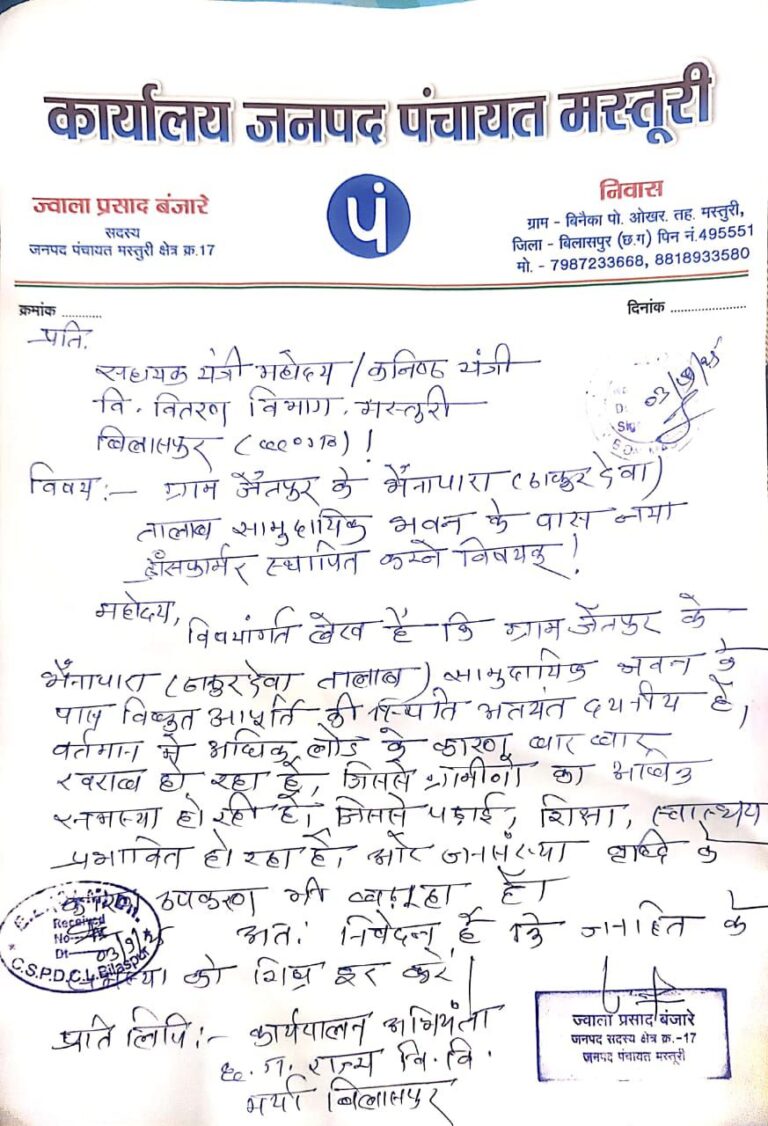 कार्यालय जनपद पंचायत मस्तूरी
ज्वाला प्रसाद बंजारे
सदस्य
जनपद पंचायत मस्तुरी क्षेत्र क्र.17
पं
निवास
ग्राम - बिनैका पो. ओखर. तह. मस्तुरी,
जिला - बिलासपुर (छ.ग) पिन नं.495551
मो. - 7987233668, 8818933580
क्रमांक ..........
दिनांक ....................
प्रति.
सहायक यंत्री महोदय / कनिष्ठ यंत्री
वि. वितरण विभाग. मस्तुरी
बिलासपुर
03/9/25
विषय:- ग्राम जैतपुर के भैंनापारा (ठाकुर देवा)
तालाब सामुदायिक भवन के पास नया
ट्रांसफार्मर स्थापित करने विषयक!
महोदय,
विषयांर्गत लेख है कि ग्राम जैतपुर के
भैंनापारा (ठाकुर देवा तालाब) सामुदायिक भवन के
पास विद्युत आपूर्ति की स्थिति अत्यंत दयनीय है,
वर्तमान में अधिक लोड के कारण बार बार
खराब हो रहा है, जिससे ग्रामीणों का
समस्या हो रही है। जिससे पढ़ाई, शिक्षा, स्वास्थ्य
प्रभावित हो रहा है, और जनसंख्या वृध्दि के
कारण उपकरण भी बढ़ रहा है।
अतः निवेदन है कि जनहित के
समस्या को शिघ्र हल करें।
Received
No
Dt 03/9/25
C.S.P.D.C.L. Bilaspur
प्रति लिपि:- कार्यपालन अभियंता
छ. ग. राज्य वि. वि.
मर्या बिलासपुर
ज्वाला प्रसाद बंजारे
जनपद सदस्य क्षेत्र क्र.-17
जनपद पंचायत मस्तूरी